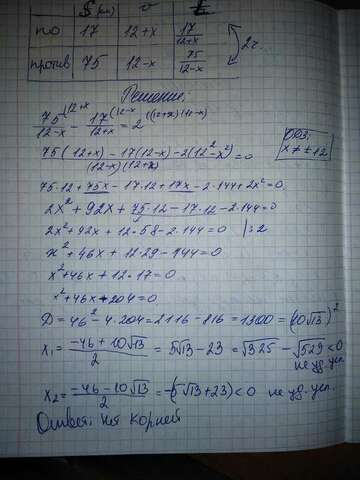 S (км) v t
по 17 12+x 17/(12+x)
против 75 12-x 75/(12-x) 2ч.
Решение:
75^(12+x)/(12-x) - 17^(12-x)/(12+x) = 2^((12+x)(12-x))
(75(12+x)-17(12-x)-2(12²-x²))/((12-x)(12+x)) = 0
ОДЗ:
x≠±12
75·12+75x-17·12+17x-2·144+2x²=0
2x²+92x+75·12-17·12-2·144=0
2x²+92x+12·58-2·144=0 |:2
x²+46x+12·29-144=0
x²+46x+12·17=0
x²+46x+204=0
D=46²-4·204=2116-816=1300=(10√13)²
x₁=(-46+10√13)/2=5√13-23=√325-√529<0
не уд. усл.
x₂=(-46-10√13)/2=-(5√13+23)<0 не уд. усл.
Ответ: нет корней